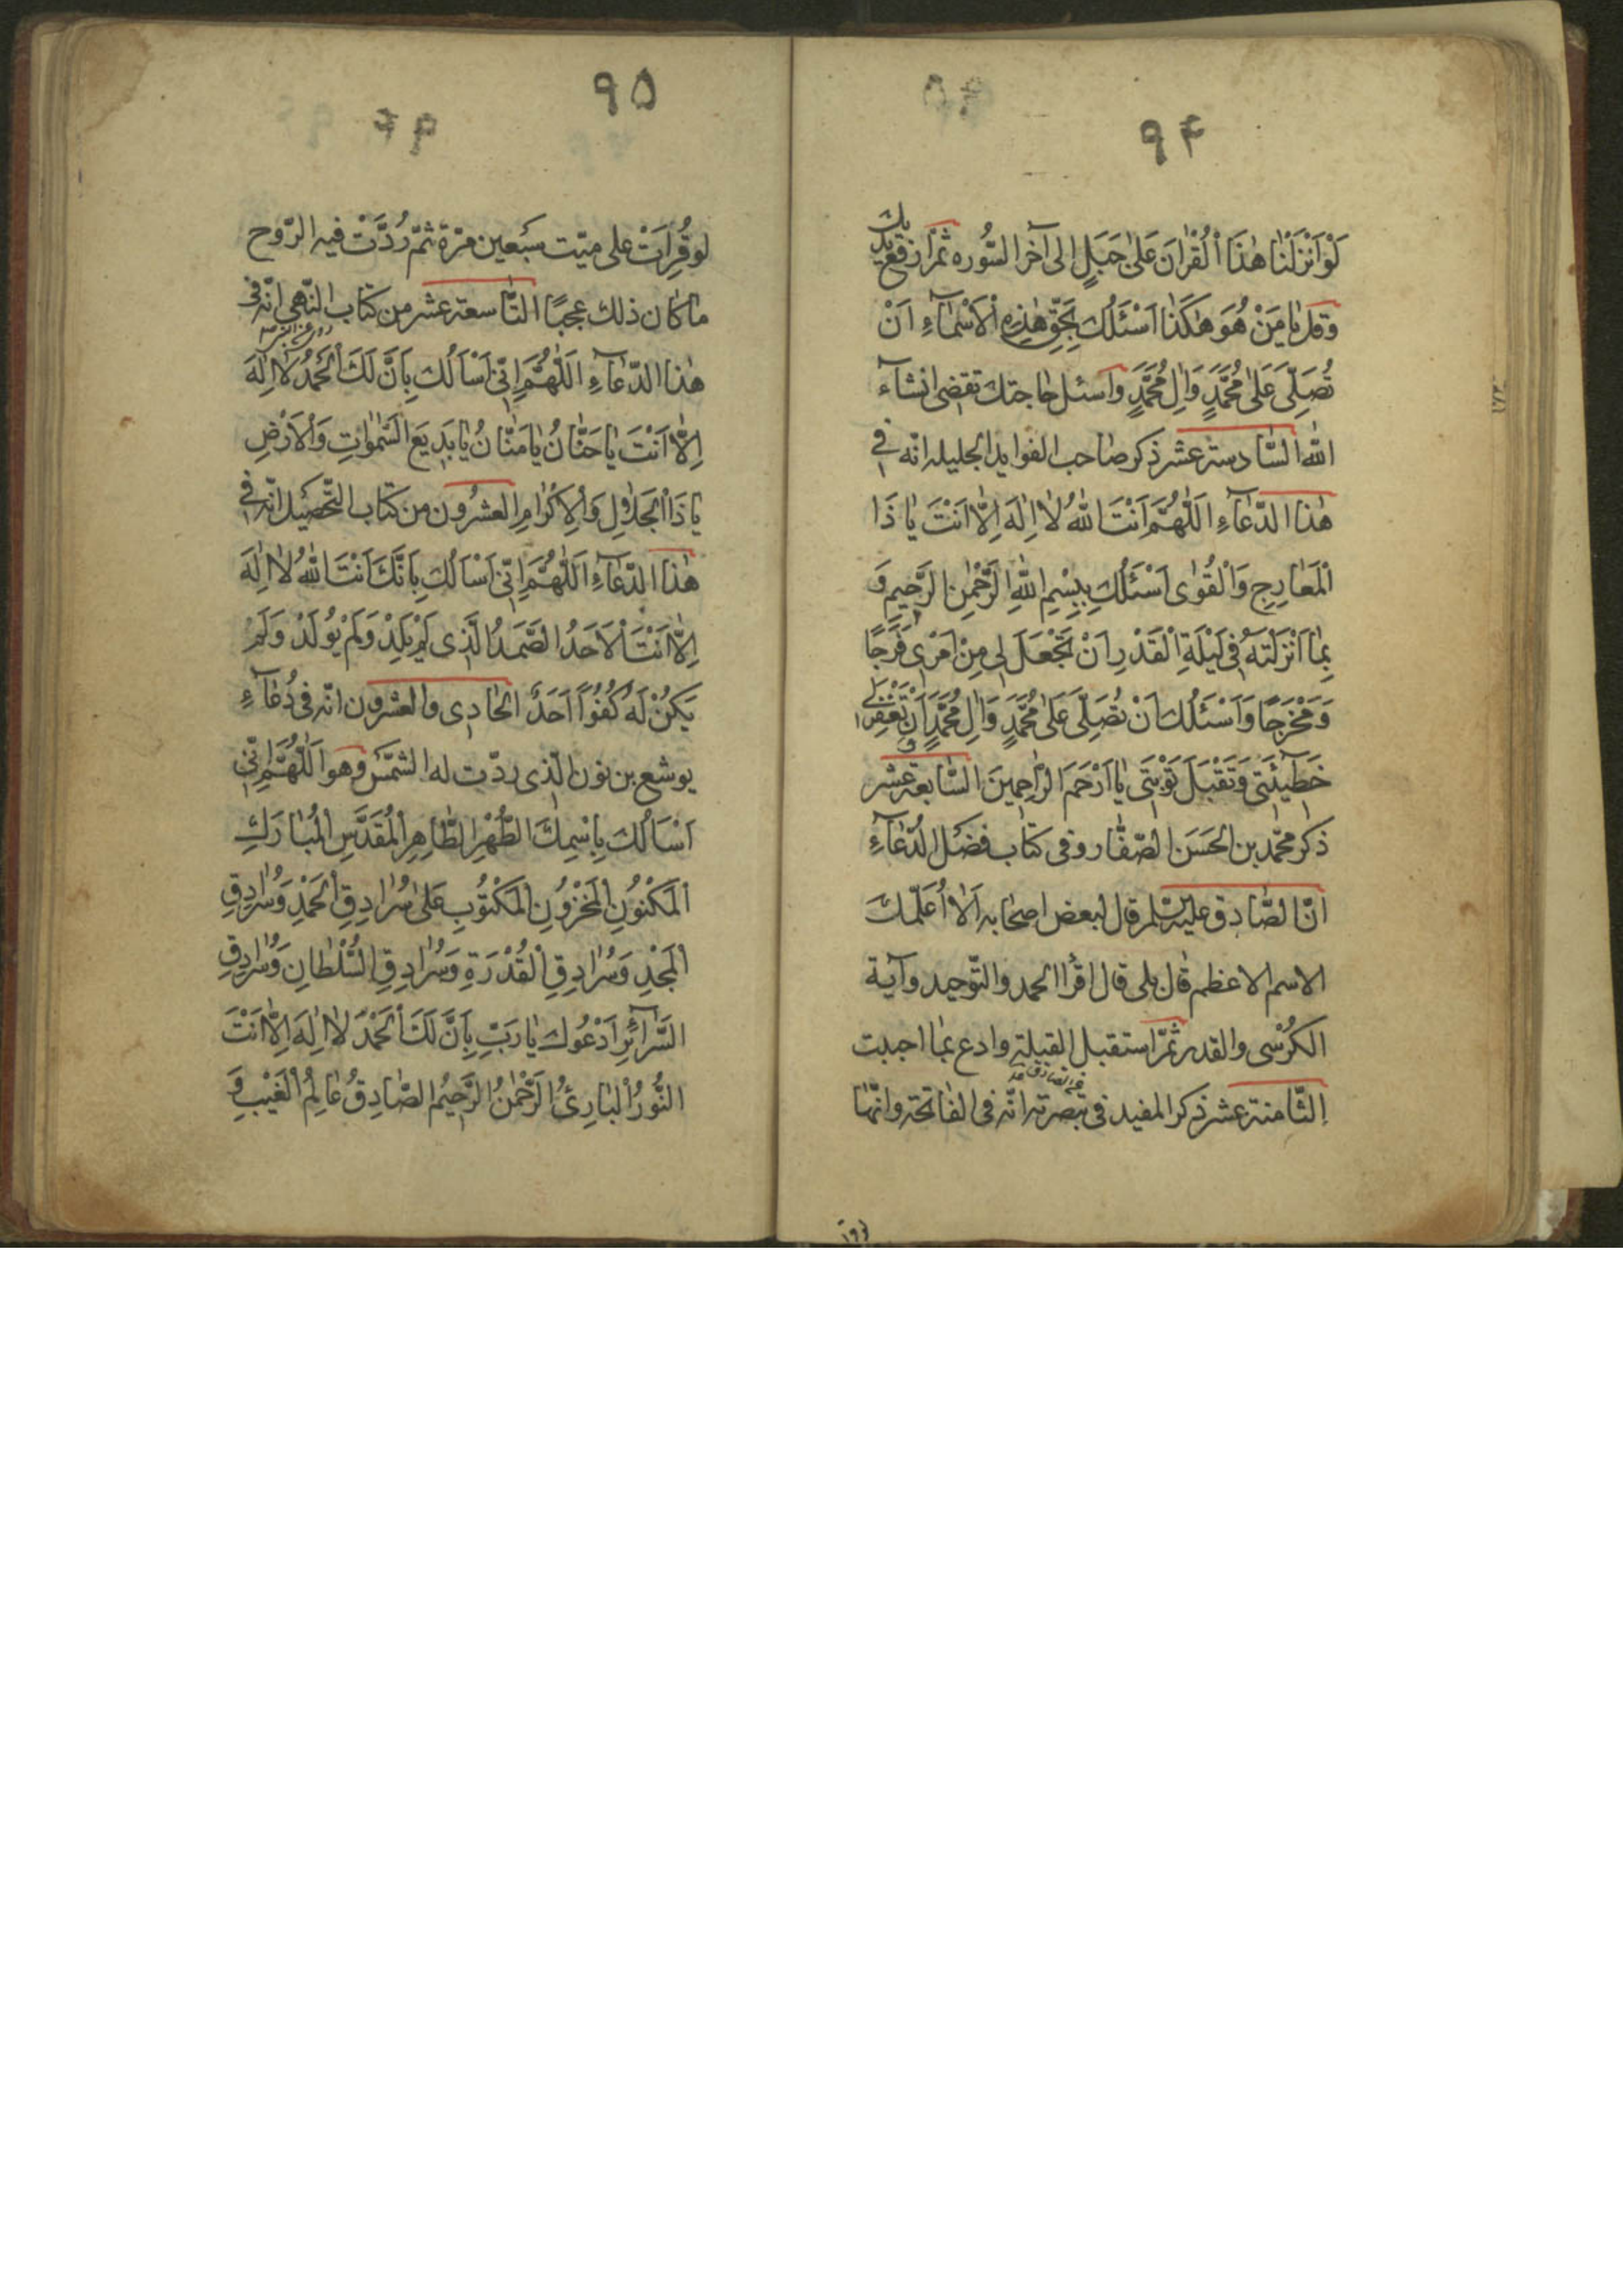 ۹۴
لَوْ اَنْزَلْنٰا هٰذَا اْلْقُرْاٰنَ عَلىٰ جَبَلٍ الى آخر السُّوره ثمّ ارفع يديك
وقل يٰا مَنْ هُوَ هٰكَذٰا اَسْئَلُكَ بِحَقِّ هٰذِهِ اْلاَسْمٰآءِ اَنْ
تُصَلِّىَ عَلىٰ مُحَمَّدٍ وَاٰلِ مُحَمَّدٍ واسئل حاجتك تقضى انشآء
اللّٰه السّٰادسة عشر ذكر صٰاحب الفوايد الجليله انّه فى
هٰذا الدّعٰآءِ اَللّٰهُمَّ اَنْتَ اللّٰهُ لاٰ اِلٰهَ اِلاّٰ اَنْتَ يٰا ذَا
اْلْمَعٰارِجِ وَاْلْقُوٰى اَسْئَلُكَ بِبِسْمِ اللّٰهِ الرَّحْمٰنِ الرَّحيمِ وَ
بِمٰا اَنْزَلْتَهُ فى لَيْلَةِ اْلْقَدْرِ اَنْ تَجْعَلَ لى مِنْ اَمْرى فَرَجًا
وَمَخْرَجًا وَاَسْئَلُكَ اَنْ تُصَلِّىَ عَلىٰ مُحَمَّدٍ وَاٰلِ مُحَمَّدٍ وَ اَنْ تَغْفِرَ لى
خَطيٓئَتى وَتَقْبَلَ تَوْبَتى يٰا اَرْحَمَ الرّٰاحِمينَ السّٰابعة عشر
ذكر محمّد بن الحَسَن الصّفّٰار وفى كتٰاب فضل الدُّعٰآءِ
انّ الصّٰادق عليه السّلم قال لبعض اصحٰابه اَلاٰ اُعَلّمك
الاسم الاعظم قٰال بلى قال اقرأ الحمد والتّوحيد وآية
الكرُسْى والقدر ثمّ استقبل القبلة وادع بمٰا احببت
الثّٰامنة عشر ذكر المفيد فى تبصرته انّه فى الفٰاتحة وانّهٰا
۱۹۶
۹۵
لو قُرِاَتْ على ميّت سَبْعين مرّة ثمّ رُدَّتْ فيه الرّوح
مٰا كٰان ذلك عجبًا التّٰاسعة عشر من كتٰاب النّهى انّه فى
هٰذا الدّعٰآءِ اَللّٰهُمَّ اِنّى اَسْاَلُكَ بِاَنَّ لَكَ اْلْحَمْدُ لاٰ اِلٰهَ
اِلاّٰ اَنْتَ يٰا حَنّٰانُ يٰا مَنّٰانُ يٰا بَديعَ السَّمٰوٰاتِ وَاْلاَرْضِ
يٰا ذَا اْلْجَلاٰلِ وَاْلاِكْرٰامِ العشرون من كتٰاب التّحصيل انّه فى
هٰذا الدّعٰآءِ اَللّٰهُمَّ اِنّى اَسْاَلُكَ بِاَنَّكَ اَنْتَ اللّٰهُ لاٰ اِلٰهَ
اِلاّٰ اَنْتَ اْلاَحَدُ الصَّمَدُ الَّذى لَمْ يَلِدْ وَلَمْ يُولَدْ وَلَمْ
يَكُنْ لَهُ كُفُوًا اَحَدٌ الحٰادى والعشرون انّه فى دُعٰآءِ
يوشع بن نون الّذى ردّت له الشمّس وهو اَللّٰهُمَّ اِنّى
اَسْاَلُكَ بِاسْمِكَ الطُّهْرِ الطّٰاهِرِ اْلْمُقَدَّسِ اْلْمُبٰارَكِ
اْلْمَكْنُونِ اْلْمَخْزُونِ اْلْمَكْتُوبِ عَلىٰ سُرٰادِقِ اْلْحَمْدِ وَسُرٰادِقِ
اْلْمَجْدِ وَسُرٰادِقِ اْلْقُدْرَةِ وَسُرٰادِقِ السُّلْطٰانِ وَسُرٰادِقِ
السَّرٰآئِرِ اَدْعُوكَ يٰا رَبِّ بِاَنَّ لَكَ اْلْحَمْدَ لاٰ اِلٰهَ اِلاّٰ اَنْتَ
النُّورُ اْلْبٰارِئُ الرَّحْمٰنُ الرَّحيمُ الصّٰادِقُ عٰالِمُ اْلْغَيْبِ وَ